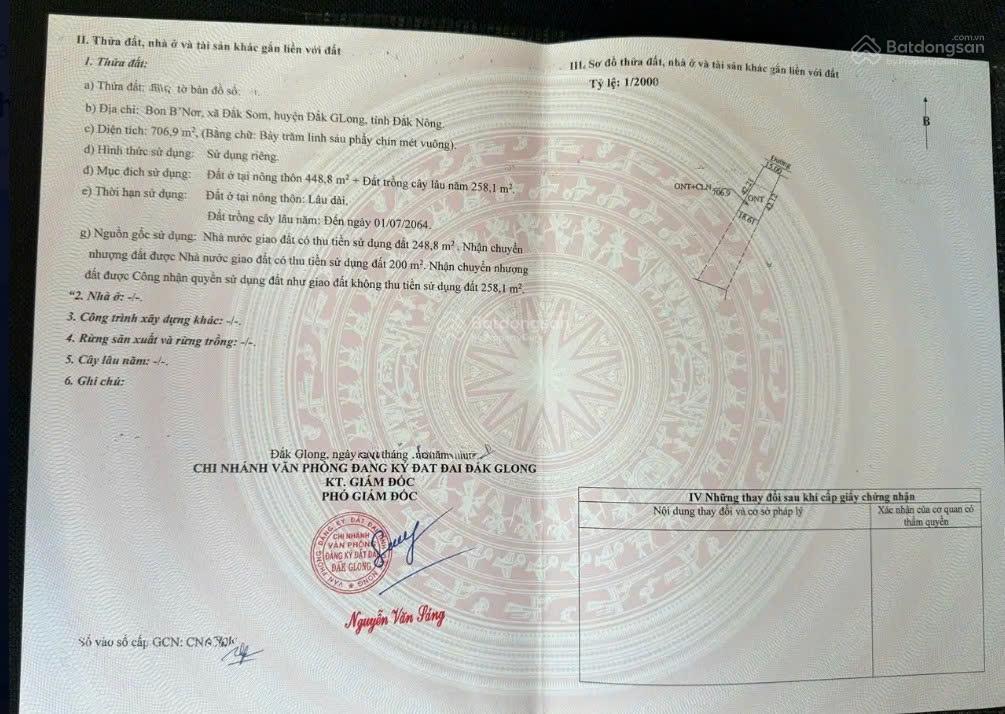 II. Thửa đất, nhà ở và tài sản khác gắn liền với đất
1. Thửa đất:
a) Thửa đất: tờ bản đồ số:
b) Địa chỉ: Bon B'Nơr, xã Đắk Som, huyện Đắk GLong, tỉnh Đắk Nông.
c) Diện tích: 706,9 m², (Bằng chữ: Bảy trăm linh sáu phẩy chín mét vuông).
d) Hình thức sử dụng: Sử dụng riêng.
đ) Mục đích sử dụng: Đất ở tại nông thôn 448,8 m² + Đất trồng cây lâu năm 258,1 m².
e) Thời hạn sử dụng: Đất ở tại nông thôn: Lâu dài.
Đất trồng cây lâu năm: Đến ngày 01/07/2064.
g) Nguồn gốc sử dụng: Nhà nước giao đất có thu tiền sử dụng đất 248,8 m². Nhận chuyển
nhượng đất được Nhà nước giao đất có thu tiền sử dụng đất 200 m². Nhận chuyển nhượng
đất được Công nhận quyền sử dụng đất như giao đất không thu tiền sử dụng đất 258,1 m².
"2. Nhà ở: -/-.
3. Công trình xây dựng khác: -/-.
4. Rừng sản xuất và rừng trồng: -/-.
5. Cây lâu năm: -/-.
6. Ghi chú:
Đắk Glong, ngày tháng năm
CHI NHÁNH VĂN PHÒNG ĐĂNG KÝ ĐẤT ĐAI ĐẮK GLONG
KT. GIÁM ĐỐC
PHÓ GIÁM ĐỐC
CHI NHÁNH
VĂN PHÒNG
ĐĂNG KÝ ĐẤT ĐAI
ĐẮK GLONG
Nguyễn Văn Sáng
Số vào sổ cấp GCN: CN
III. Sơ đồ thửa đất, nhà ở và tài sản khác gắn liền với đất
Tỷ lệ: 1/2000
B
Đường
15.00
ONT+CLN 706.9
42.21
ONT
42.12
18.61
IV Những thay đổi sau khi cấp giấy chứng nhận
Nội dung thay đổi và cơ sở pháp lý
Xác nhận của cơ quan có
thẩm quyền
Batdongsan.com.vn
by PropertyGuru
Batdongsan
by PropertyGuru